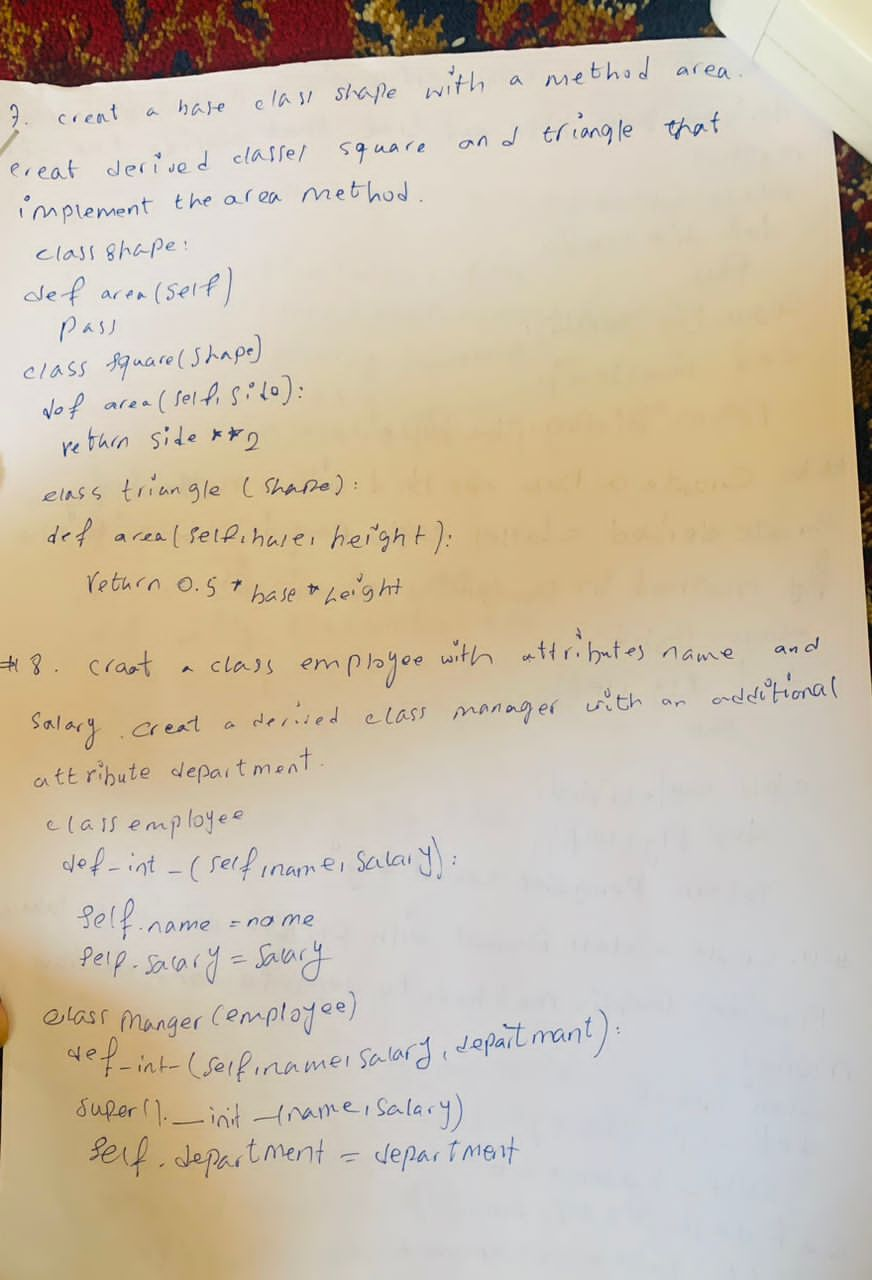 7. creat a base class shape with a method area.
creat derived classes square and triangle that
implement the area method.
class shape:
def area (self)
pass
class square (shape)
def area (self, side):
return side **2
class triangle (shape):
def area (self, base, height):
return 0.5 * base * height
#8. craat a class employee with attributes name and
salary. creat a derived class manager with an additional
attribute department.
class employee
def_int_(self, name, salary):
self.name = name
self.salary = salary
class manger (employee)
def_int_(self, name, salary, departmant):
super().__init_(name, salary)
self.department = department